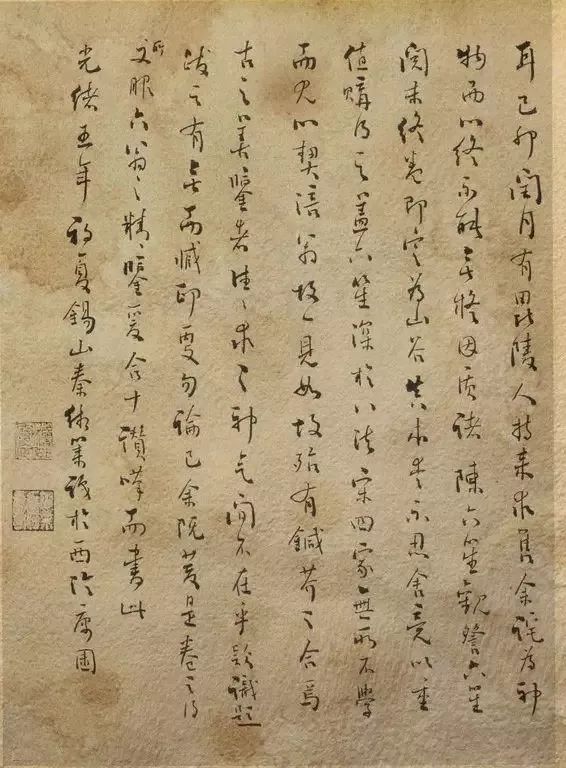 耳己卯閏月有毘陵人持来求售余詫為神
物而以終不能無疑因質諸陳六笙觀詧六笙
閱未終卷即定為山谷真本愛不忍舍竟以重
值購得之蓋六笙深於八法宋四家無所不學
而尤以契涪翁故一見如故殆有鍼芥之合焉
古之美鑒者往往求之神气間不在乎款識題
跋之有無而臧印更勿論已余既慶是卷之得
所又服六翁之精鑒爰合十讚嘆而書此
光緒五年初夏錫山秦緗業識於西泠寓園